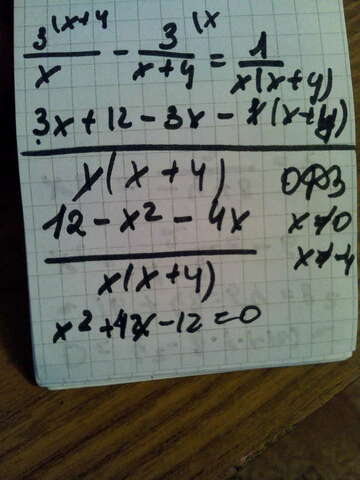 3^{(x+4}/x - 3^{(x}/(x+4) = 1/(x(x+4))
(3x+12-3x-x(x+4))/(x(x+4))
ОДЗ
(12-x²-4x)/(x(x+4))
x≠0
x≠-4
x²+4x-12=0